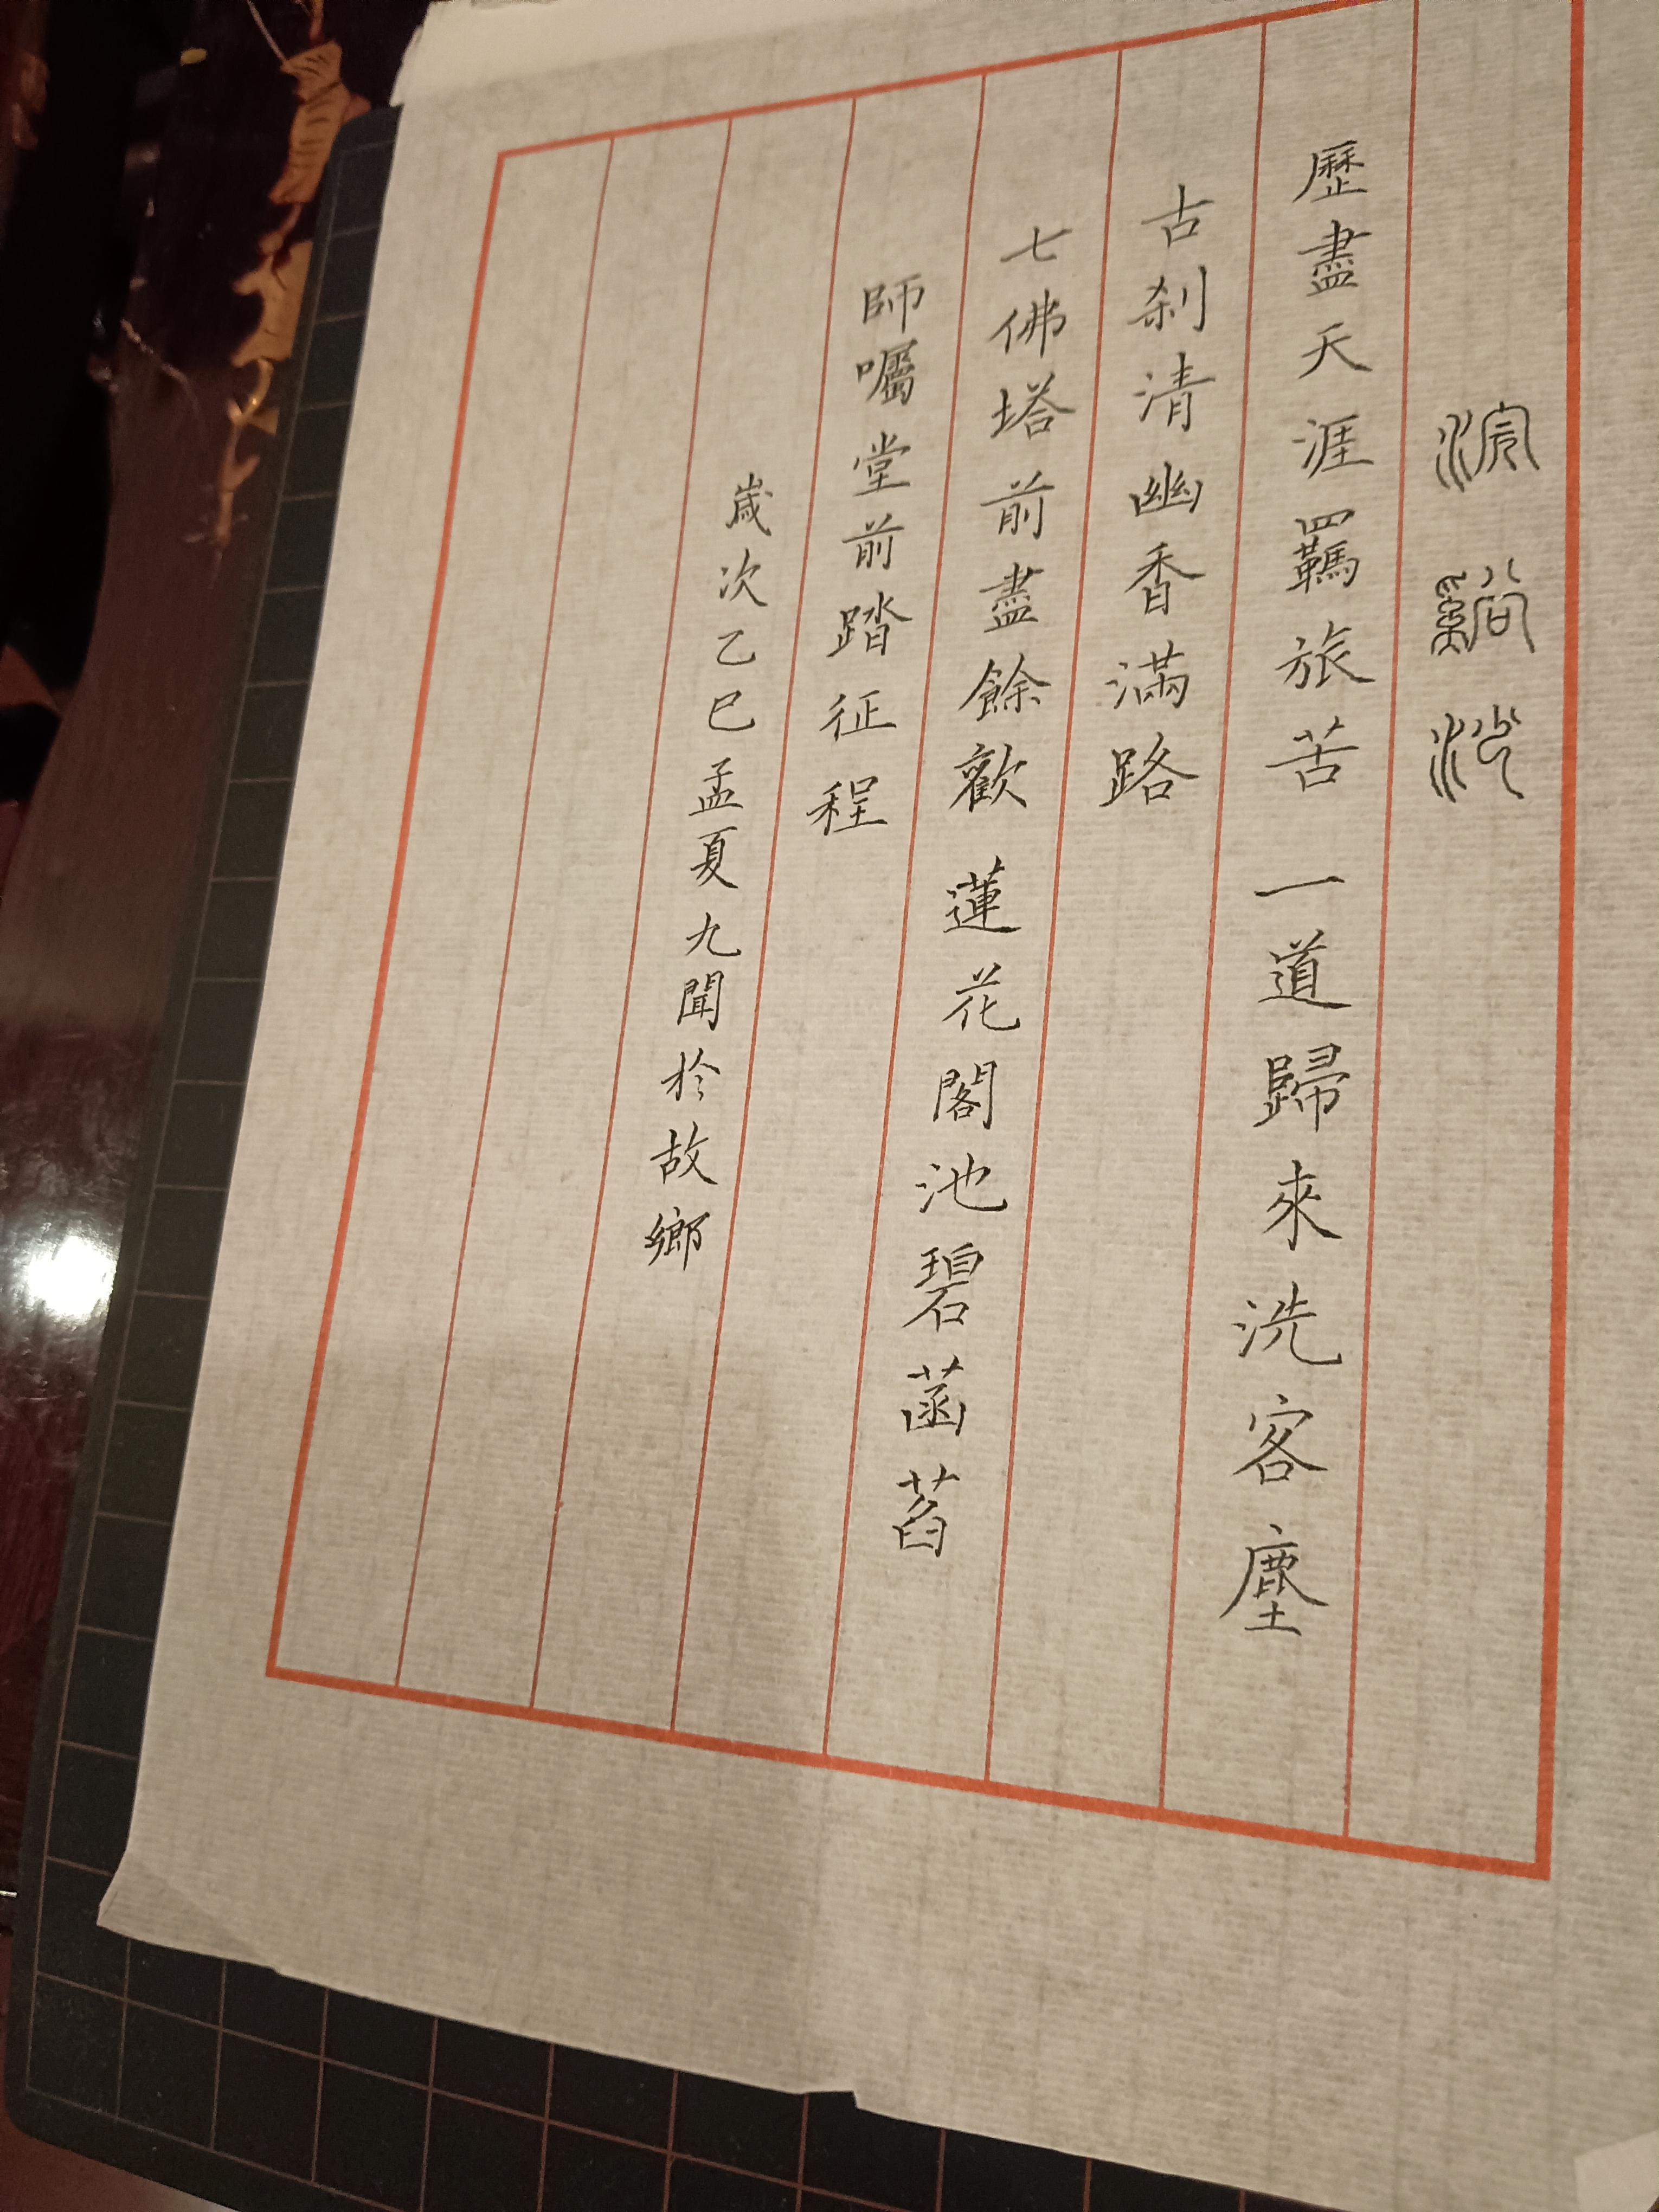 浣谿沙
歷盡天涯羈旅苦 一道歸來洗客塵
古刹清幽香滿路
七佛塔前盡餘歡 蓮花閣池碧菡萏
師囑堂前踏征程
歲次乙巳孟夏九聞於故鄉